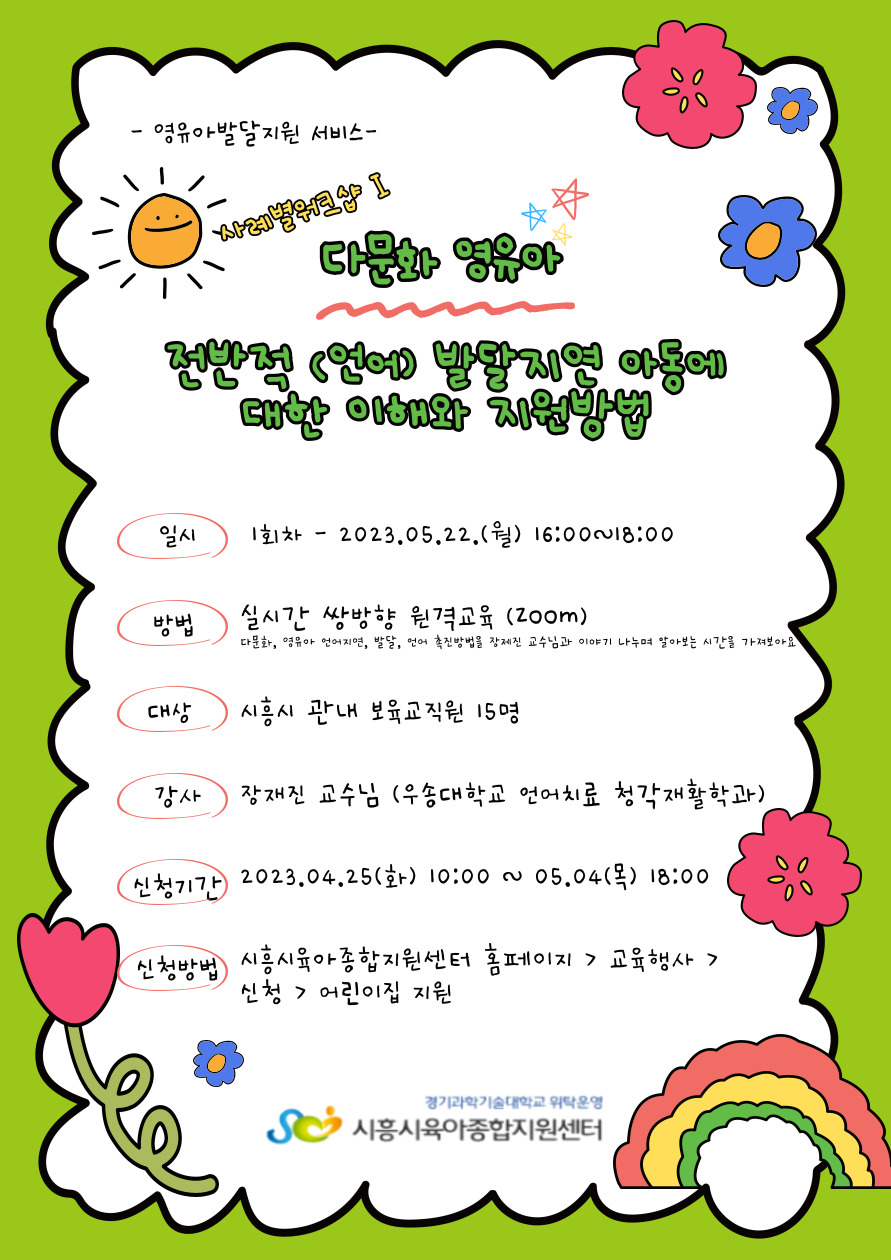 - 영유아발달지원 서비스-
사례별워크샵 I
다문화 영유아
전반적 (언어) 발달지연 아동에
대한 이해와 지원방법
일시 1회차 - 2023.05.22.(월) 16:00~18:00
방법 실시간 쌍방향 원격교육 (zoom)
다문화, 영유아 언어지연, 발달, 언어 촉진방법을 장제진 교수님과 이야기 나누며 알아보는 시간을 가져보아요
대상 시흥시 관내 보육교직원 15명
강사 장재진 교수님 (우송대학교 언어치료 청각재활학과)
신청기간 2023.04.25(화) 10:00 ~ 05.04(목) 18:00
신청방법 시흥시육아종합지원센터 홈페이지 > 교육행사 >
신청 > 어린이집 지원
경기과학기술대학교 위탁운영
시흥시육아종합지원센터